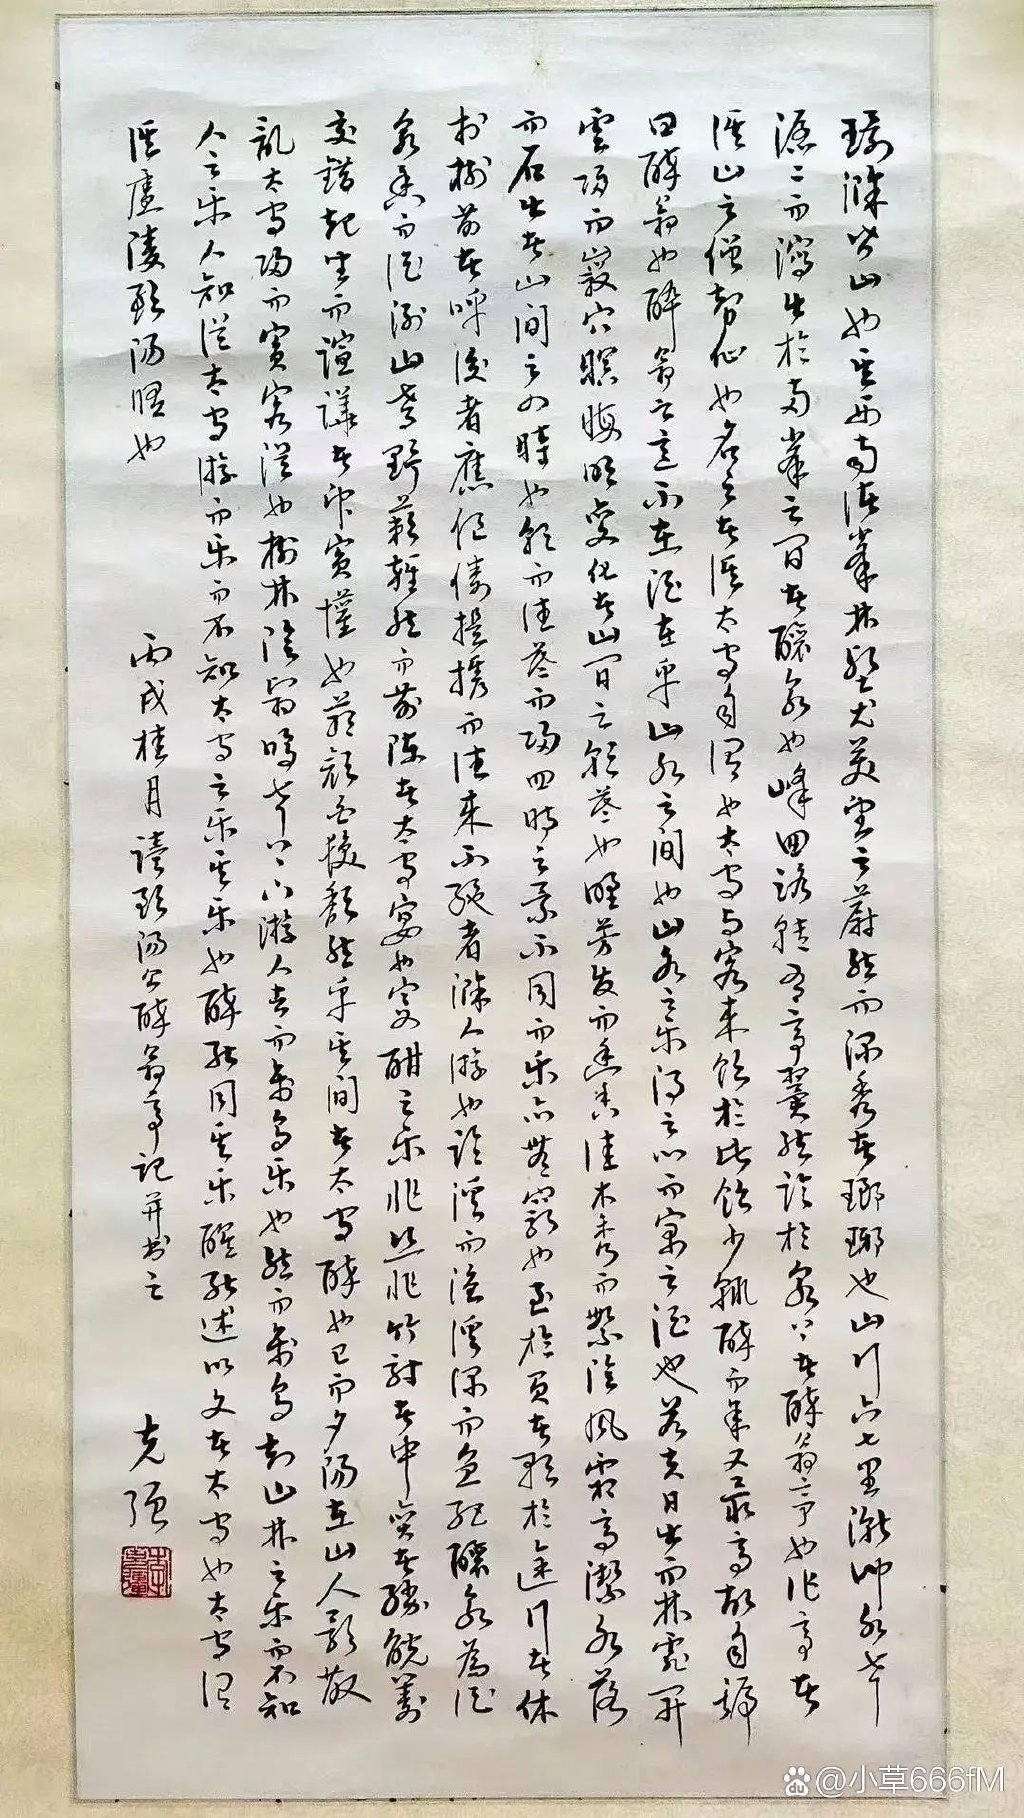 環滁皆山也其西南諸峯林壑尤美望之蔚然而深秀者瑯瑯也山行六七里漸聞水聲
潺〻而瀉出於两峯之間者釀泉也峰回路轉有亭翼然臨於泉上者醉翁亭也作亭者
誰山之僧智仙也名之者誰太守自謂也太守与客來飲於此飲少輒醉而年又最高故自號
曰醉翁也醉翁之意不在酒在乎山水之間也山水之樂得之心而寓之酒也若夫日出而林霏開
雲歸而巖穴暝晦明变化者山間之朝暮也野芳发而幽香佳木秀而繁陰風霜高潔水落
而石出者山間之四時也朝而往暮而歸四時之景不同而樂亦無窮也至於負者歌於途行者休
於樹前者呼後者應傴僂提攜而往來不絕者滁人游也臨溪而漁溪深而魚肥釀泉為酒
泉香而酒洌山肴野蔌雜然而前陳者太守宴也宴酣之樂非絲非竹射者中弈者勝觥籌
交錯起坐而諠譁者眾賓懽也蒼顏白髮頹然乎其間者太守醉也已而夕陽在山人影散
亂太守歸而賓客從也樹林陰翳鳴聲上下游人去而禽鳥樂也然而禽鳥知山林之樂而不知
人之樂人知從太守游而樂而不知太守之樂其樂也醉能同其樂醒能述以文者太守也太守謂
誰廬陵歐陽脩也 丙戌桂月讀歐陽公醉翁亭記并书之 克强
@小草666fM